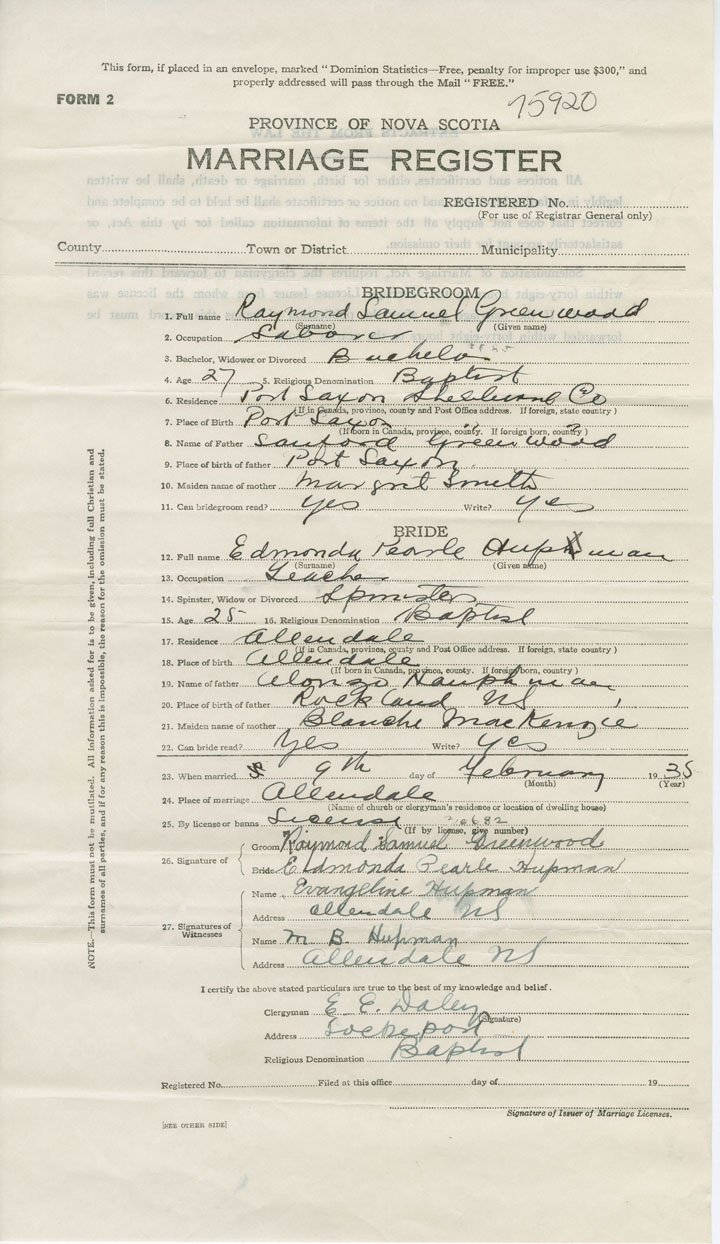 This form, if placed in an envelope, marked "Dominion Statistics—Free, penalty for improper use $300," and
properly addressed will pass through the Mail "FREE."
FORM 2
75920
PROVINCE OF NOVA SCOTIA
MARRIAGE REGISTER
REGISTERED No.
(For use of Registrar General only)
County Town or District Municipality
BRIDEGROOM
1. Full name Raymond Samuel Greenwood
(Surname) (Given name)
2. Occupation Laborer
3. Bachelor, Widower or Divorced Bachelor
4. Age 27 5. Religious Denomination Baptist
6. Residence Port Saxon Shelburne Co
(If in Canada, province, county and Post Office address. If foreign, state country)
7. Place of Birth Port Saxon
(If born in Canada, province, county. If foreign born, country)
8. Name of Father Sanford Greenwood
9. Place of birth of father Port Saxon
10. Maiden name of mother Margrit Smith
11. Can bridegroom read? yes Write? yes
BRIDE
12. Full name Edmonda Pearle Hupman
(Surname) (Given name)
13. Occupation Teacher
14. Spinster, Widow or Divorced Spinister
15. Age 25 16. Religious Denomination Baptist
17. Residence Allendale
(If in Canada, province, county and Post Office address. If foreign, state country)
18. Place of birth Allendale
(If born in Canada, province, county. If foreign born, country)
19. Name of father Alonzo Hauphman
20. Place of birth of father Rockland NS
21. Maiden name of mother Blanche MacKenzie
22. Can bride read? Yes Write? yes
23. When married 9th day of February 1935
(Month) (Year)
24. Place of marriage Allendale
(Name of church or clergyman's residence or location of dwelling house)
25. By license or banns License
(If by license, give number)
26. Signature of Groom Raymond Samuel Greenwood
Bride Edmonda Pearle Hupman
27. Signatures of Witnesses
Name Evangeline Hupman
Address Allendale NS
Name M B Hupman
Address Allendale NS
I certify the above stated particulars are true to the best of my knowledge and belief.
Clergyman E. E. Daley
(Signature)
Address Lockeport
Religious Denomination Baptist
Registered No. Filed at this office day of 19
Signature of Issuer of Marriage Licenses.
[SEE OTHER SIDE]
NOTE.—This form must not be mutilated. All information asked for is to be given, including full Christian and
surnames of all parties, and if for any reason this is impossible, the reason for the omission must be stated.